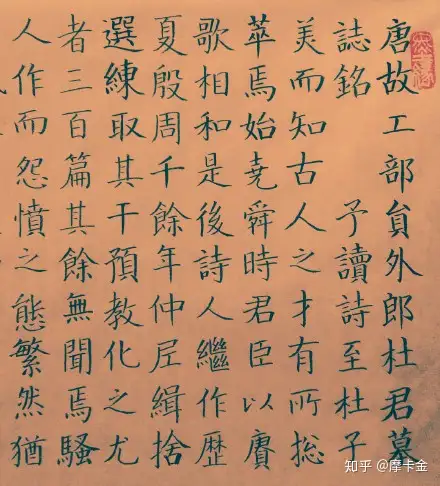 唐故工部貟外郎杜君墓
誌銘 予讀詩至杜子
美而知古人之才有所揔
萃焉始堯舜時君臣以賡
歌相和是後詩人繼作歴
夏殷周千餘年仲尼緝捨
選練取其干預教化之尤
者三百篇其餘無聞焉騷
人作而怨憤之態繁然猶
知乎 @摩卡金